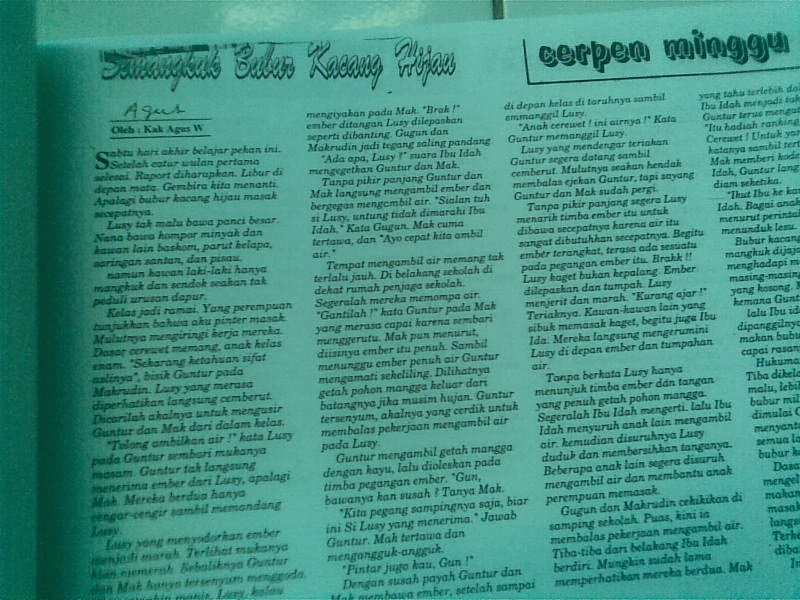 Semangkuk Bubur Kacang Hijau
cerpen minggu
Agus
Oleh : Kak Agus W
Sabtu hari akhir belajar pekan ini.
Setelah catur wulan pertama
selesai. Raport diharapkan. Libur di
depan mata. Gembira kita menanti.
Apalagi bubur kacang hijau masak
secepatnya.
Lusy tak malu bawa panci besar.
Nana bawa kompor minyak dan
kawan lain baskom, parut kelapa,
saringan santan, dan pisau.
namun kawan laki-laki hanya
mangkuk dan sendok seakan tak
peduli urusan dapur.
Kelas jadi ramai. Yang perempuan
tunjukkan bahwa aku pinter masak.
Mulutnya mengiringi kerja mereka.
Dasar cerewet memang, anak kelas
enam. "Sekarang ketahuan sifat
aslinya", bisik Guntur pada
Makrudin. Lusy yang merasa
diperhatikan langsung cemberut.
Dicarilah akalnya untuk mengusir
Guntur dan Mak dari dalam kelas.
"Tolong ambilkan air !" kata Lusy
pada Guntur sembari mukanya
masam. Guntur tak langsung
menerima ember dari Lusy, apalagi
Mak. Mereka berdua hanya
cengar-cengir sambil memandang
Lusy
Lusy yang menyodorkan ember
menjadi marah. Terlihat mukanya
memerah. Sebaliknya Guntur
dan Mak hanya tersenyum menggoda.
manis, Lusy, kalau
mengiyakan pada Mak. "Brak !"
ember ditangan Lusy dilepaskan
seperti dibanting. Gugun dan
Makrudin jadi tegang saling pandang
"Ada apa, Lusy ?" suara Ibu Idah
mengegetkan Guntur dan Mak.
Tanpa pikir panjang Guntur dan
Mak langsung mengambil ember dan
bergegas mengambil air. "Sialan tuh
si Lusy, untung tidak dimarahi Ibu
Idah." Kata Gugun. Mak cuma
tertawa, dan "Ayo cepat kita ambil
air."
Tempat mengambil air memang tak
terlalu jauh. Di belakang sekolah di
dekat rumah penjaga sekolah.
Segeralah mereka memompa air.
"Gantilah !" kata Guntur pada Mak
yang merasa capai karena sembari
menggerutu. Mak pun menurut,
diisinya ember itu penuh. Sambil
menunggu ember penuh air Guntur
mengamati sekeliling. Dilihatnya
getah pohon mangga keluar dari
batangnya jika musim hujan. Guntur
tersenyum, akalnya yang cerdik untuk
membalas pekerjaan mengambil air
pada Lusy.
Guntur mengambil getah mangga
dengan kayu, lalu dioleskan pada
timba pegangan ember. "Gun,
bawanya kan susah ? Tanya Mak.
"Kita pegang sampingnya saja, biar
ini Si Lusy yang menerima." Jawab
Guntur. Mak tertawa dan
mengangguk-angguk.
"Pintar juga kau, Gun !"
Dengan susah payah Guntur dan
Mak membawa ember, setelah sampai
di depan kelas di taruhnya sambil
emmanggil Lusy.
"Anak cerewet ! ini airnya !" Kata
Guntur memanggil Lusy.
Lusy yang mendengar teriakan
Guntur segera datang sambil
cemberut. Mulutnya seakan hendak
membalas ejekan Guntur, tapi sayang
Guntur dan Mak sudah pergi.
Tanpa pikir panjang segera Lusy
menarik timba ember itu untuk
dibawa secepatnya karena air itu
sangat dibutuhkan secepatnya. Begitu
ember terangkat, terasa ada sesuatu
pada pegangan ember itu. Brakk !!
Lusy kaget bukan kepalang. Ember
dilepaskan dan tumpah. Lusy
menjerit dan marah. "Kurang ajar !"
Teriaknya. Kawan-kawan lain yang
sibuk memasak kaget, begitu juga Ibu
Ida. Mereka langsung mengerumini
Lusy di depan ember dan tumpahan
air.
Tanpa berkata Lusy hanya
menunjuk timba ember dan tangan
yang penuh getah pohon mangga.
Segeralah Ibu Idah mengerti. lalu Ibu
Idah menyuruh anak lain mengambil
air. kemudian disuruhnya Lusy
duduk dan membersihkan tanganya.
Beberapa anak lain segera disuruh
mengambil air dan membantu anak
perempuan memasak.
Gugun dan Makrudin cekikikan di
samping sekolah. Puas, kini ia
membalas pekerjaan mengambil air.
Tiba-tiba dari belakang Ibu Idah
berdiri. Mungkin sudah lama
memperhatikan mereka berdua. Mak
yang tahu terlebih
Ibu Idah menjadi
Guntur terus
"Itu hadiah ranking
Cerewet ! Untuk
katanya sambil
Mak memberi
Idah, Guntur
diam seketika.
"Ikut Ibu ke
Idah. Bagai anak
menurut
menunduk lesu.
Bubur kacang
mangkuk
menghadapi
masing-masing
yang kosong.
kemana
lalu Ibu
dipanggilnya
makan bubur
capai
Hukuma
Tiba
malu, lebih
bubur
dimulai
menyant
semua
bubur
Dasa
mengel
makan
masak
langs
Terh
diba